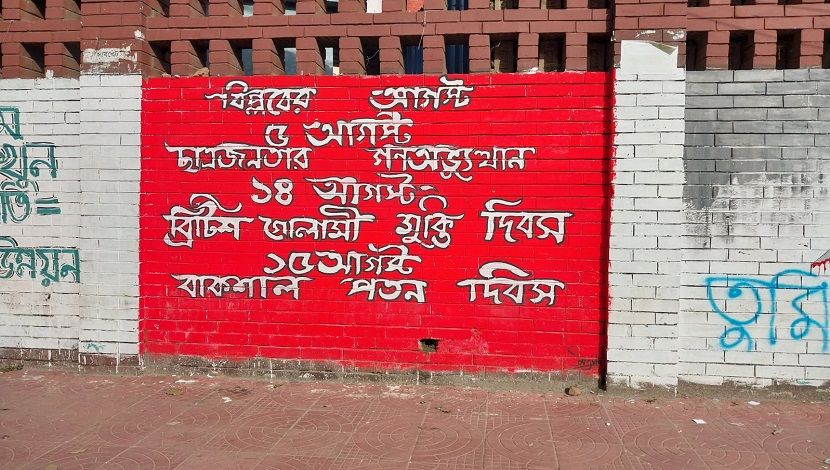 বিপ্লবের আগস্ট
৫ আগস্ট
ছাত্রজনতার গনঅভ্যুত্থান
১৪ আগস্ট
ব্রিটিশ গোলামী মুক্তি দিবস
১৫ আগস্ট
বাকশাল পতন দিবস
খুন
=
উন্নয়ন
তুমি